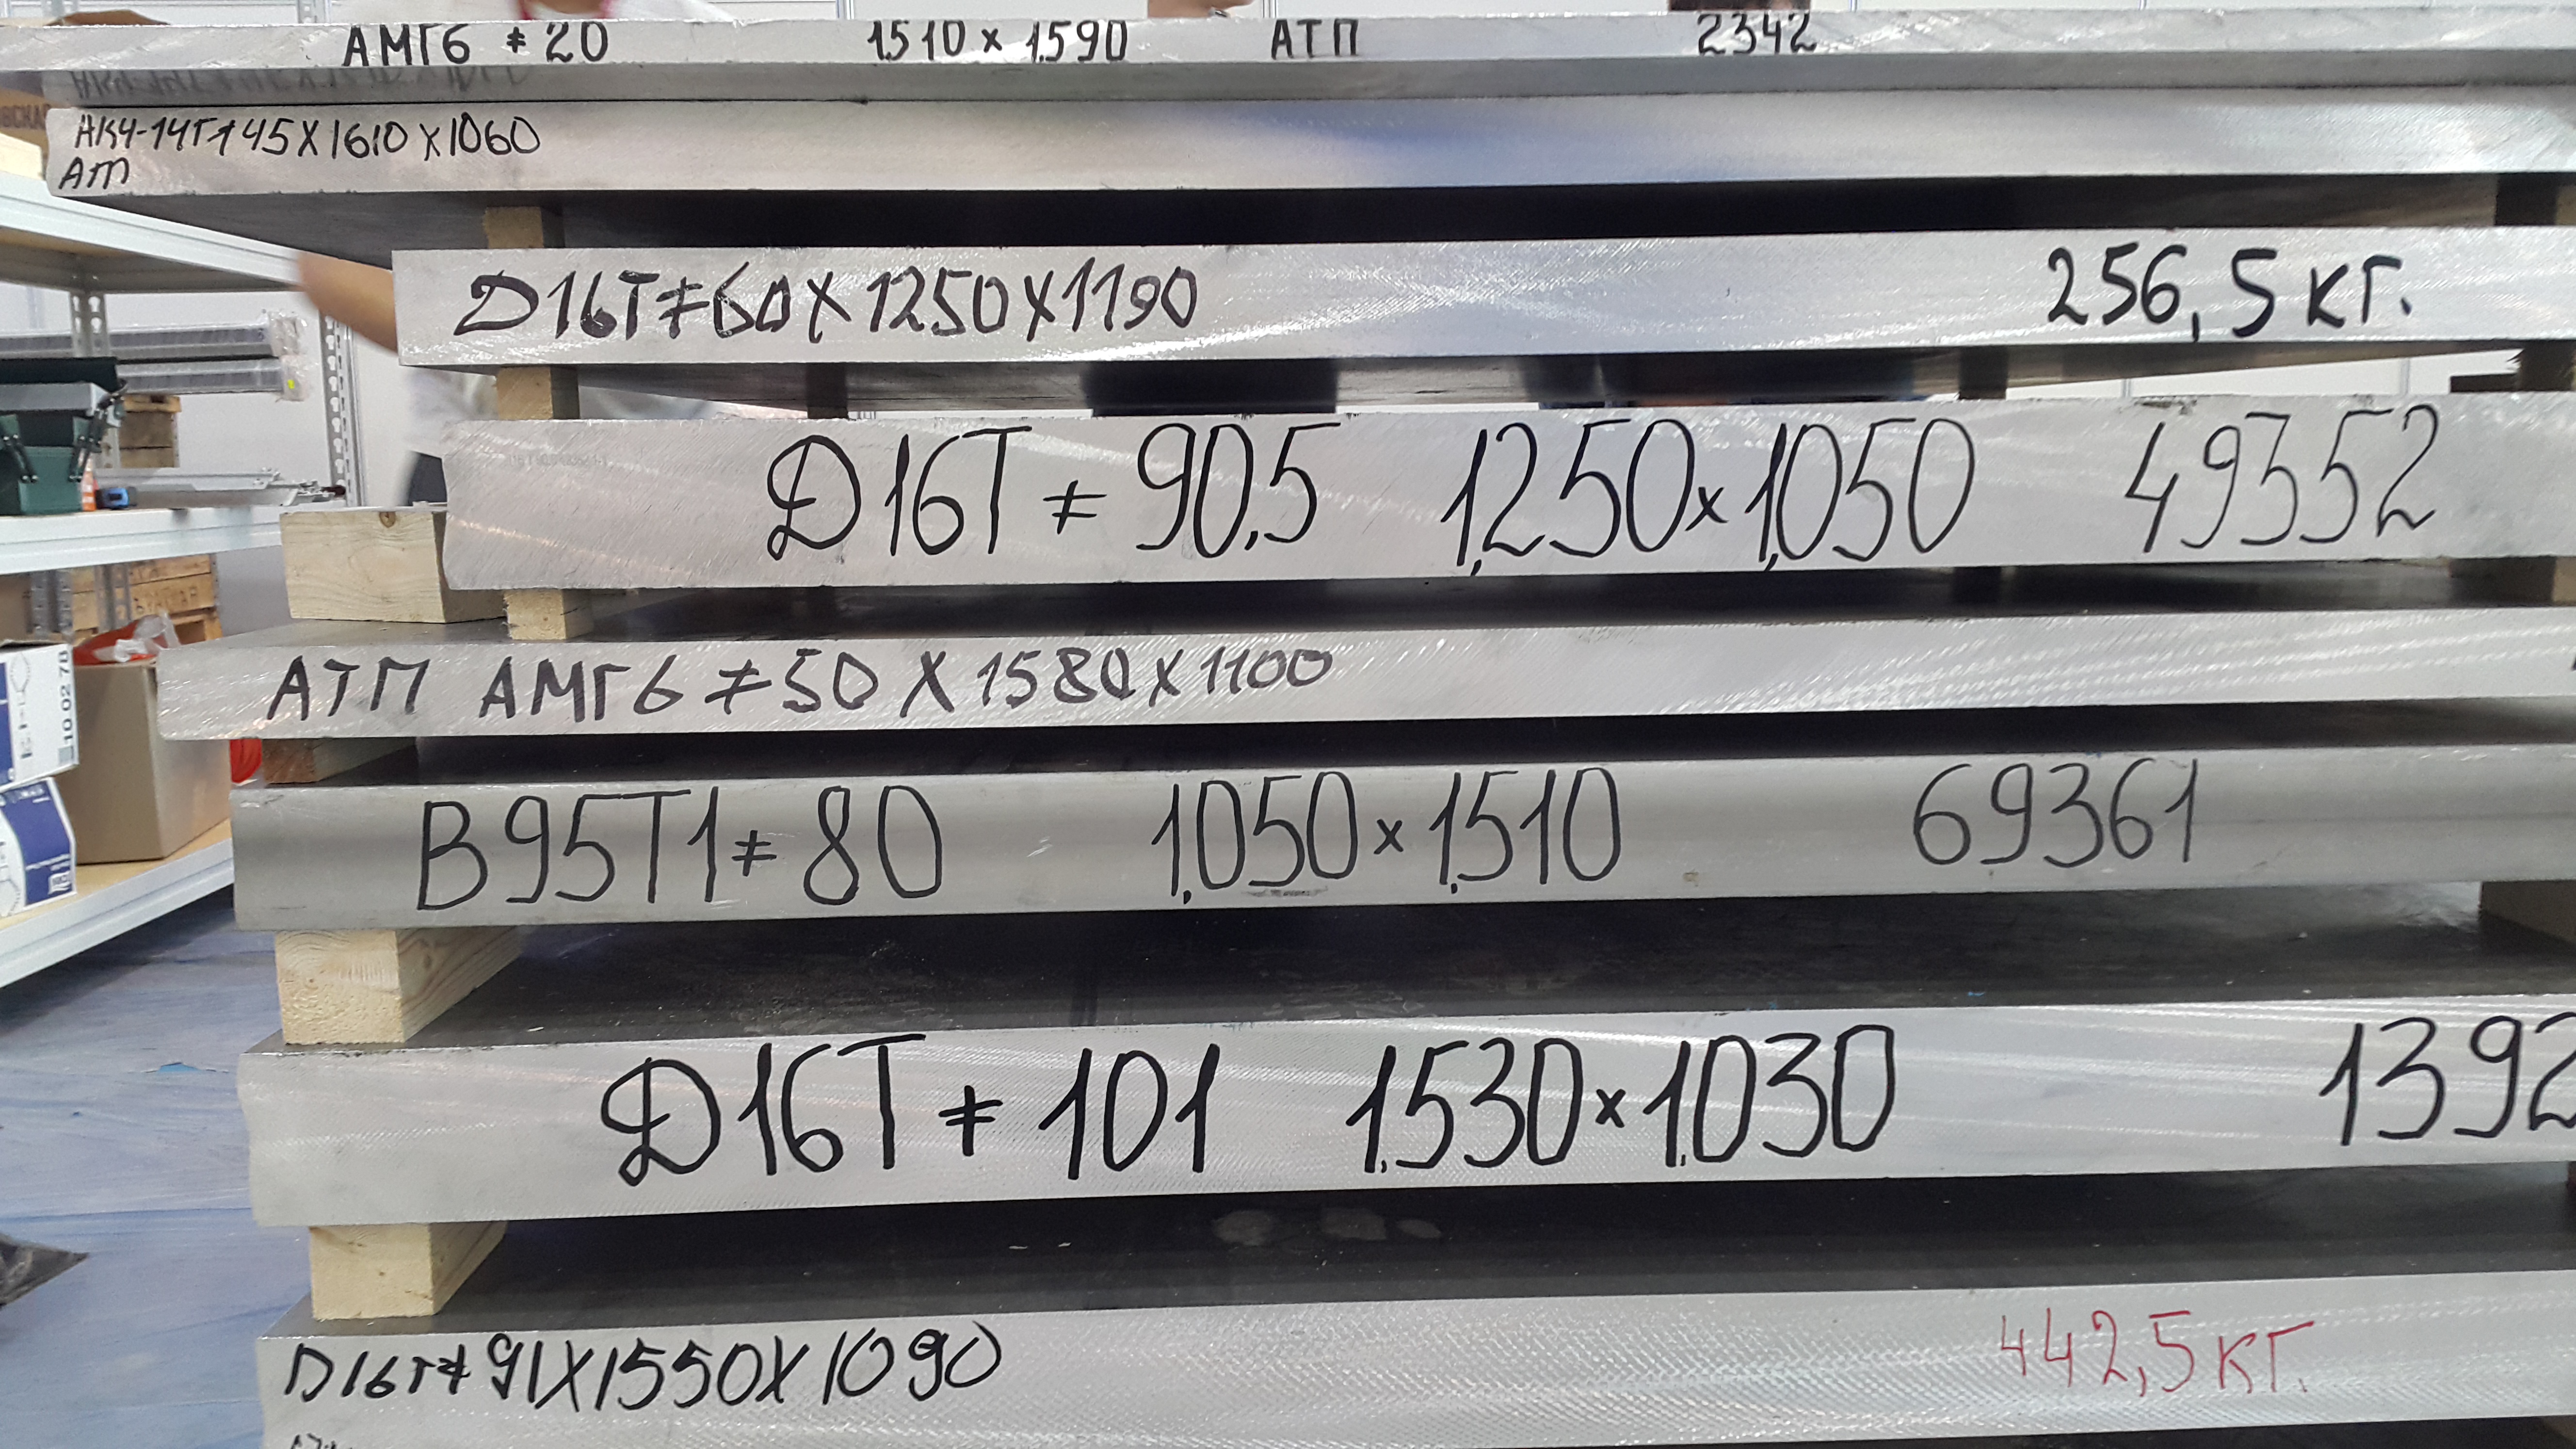 АМГ6 ≠ 20 1510 × 1590 АТП 2342
АК4-1ЧТ1 45Х1610Х1060
АТП
Д16Т≠60Х1250Х1190 256,5 кг.
Д16Т ≠ 90,5 1,250×1,050 49352
АТП АМГ6 ≠50 Х 1580Х1100
В95Т1≠ 80 1,050×1,510 69361
Д16Т ≠ 101 1,530×1,030 1392
Д16Т≠ 91Х1550Х1090 442,5 кг.
10 02 78